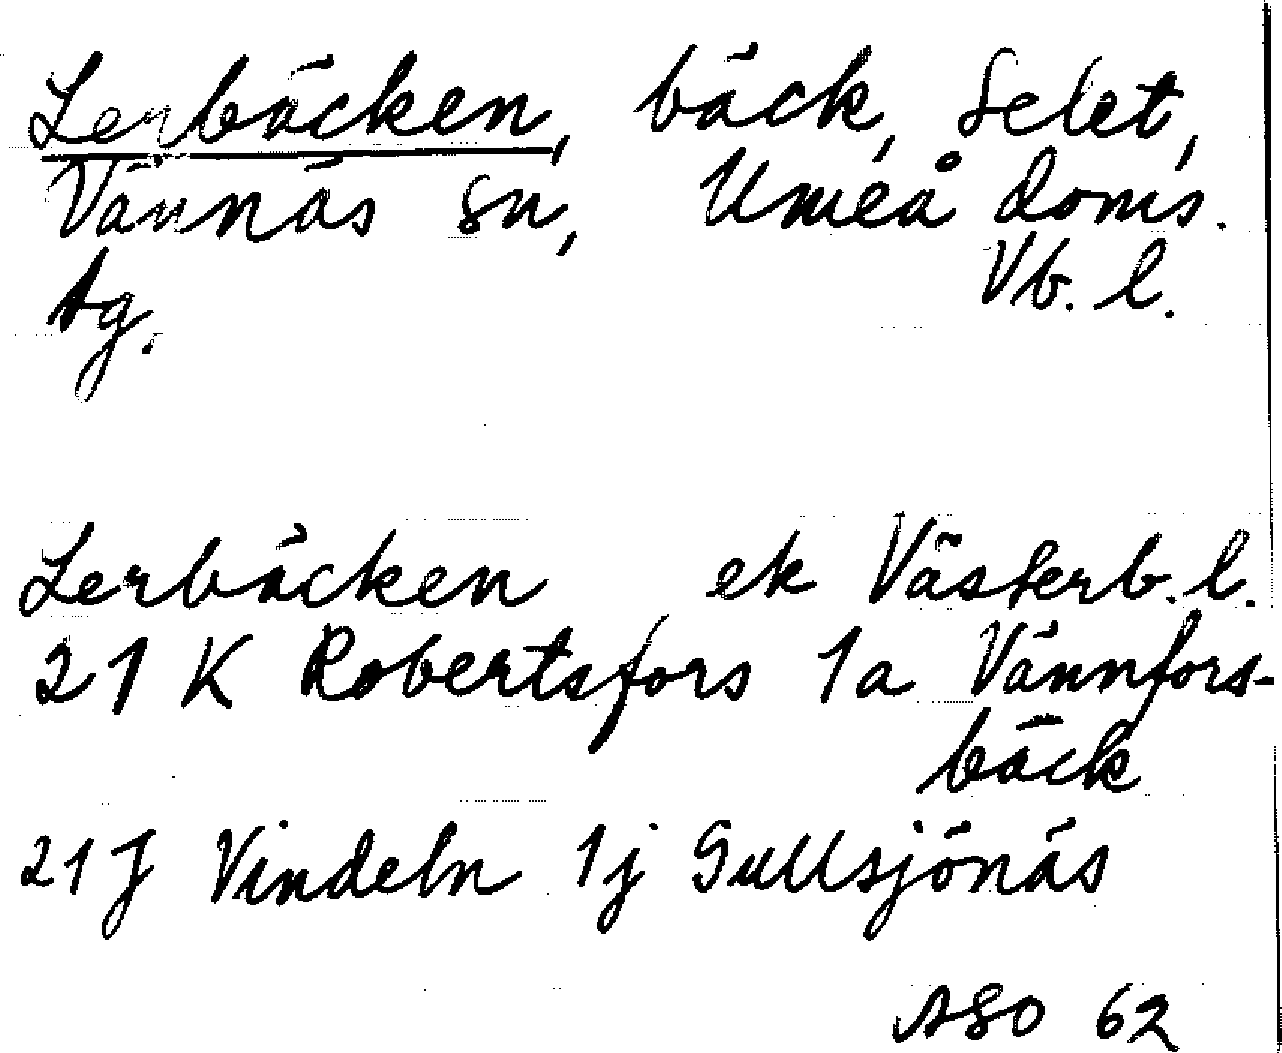 Lerbäcken, bäck, Selet,
Vännäs sn, Umeå doms.
tg. Vb. l.
Lerbäcken ek Västerb. l.
21 K Robertsfors 1a Vännfors-
bäck
21 J Vindeln 1j Gullsjönäs
ASO 62